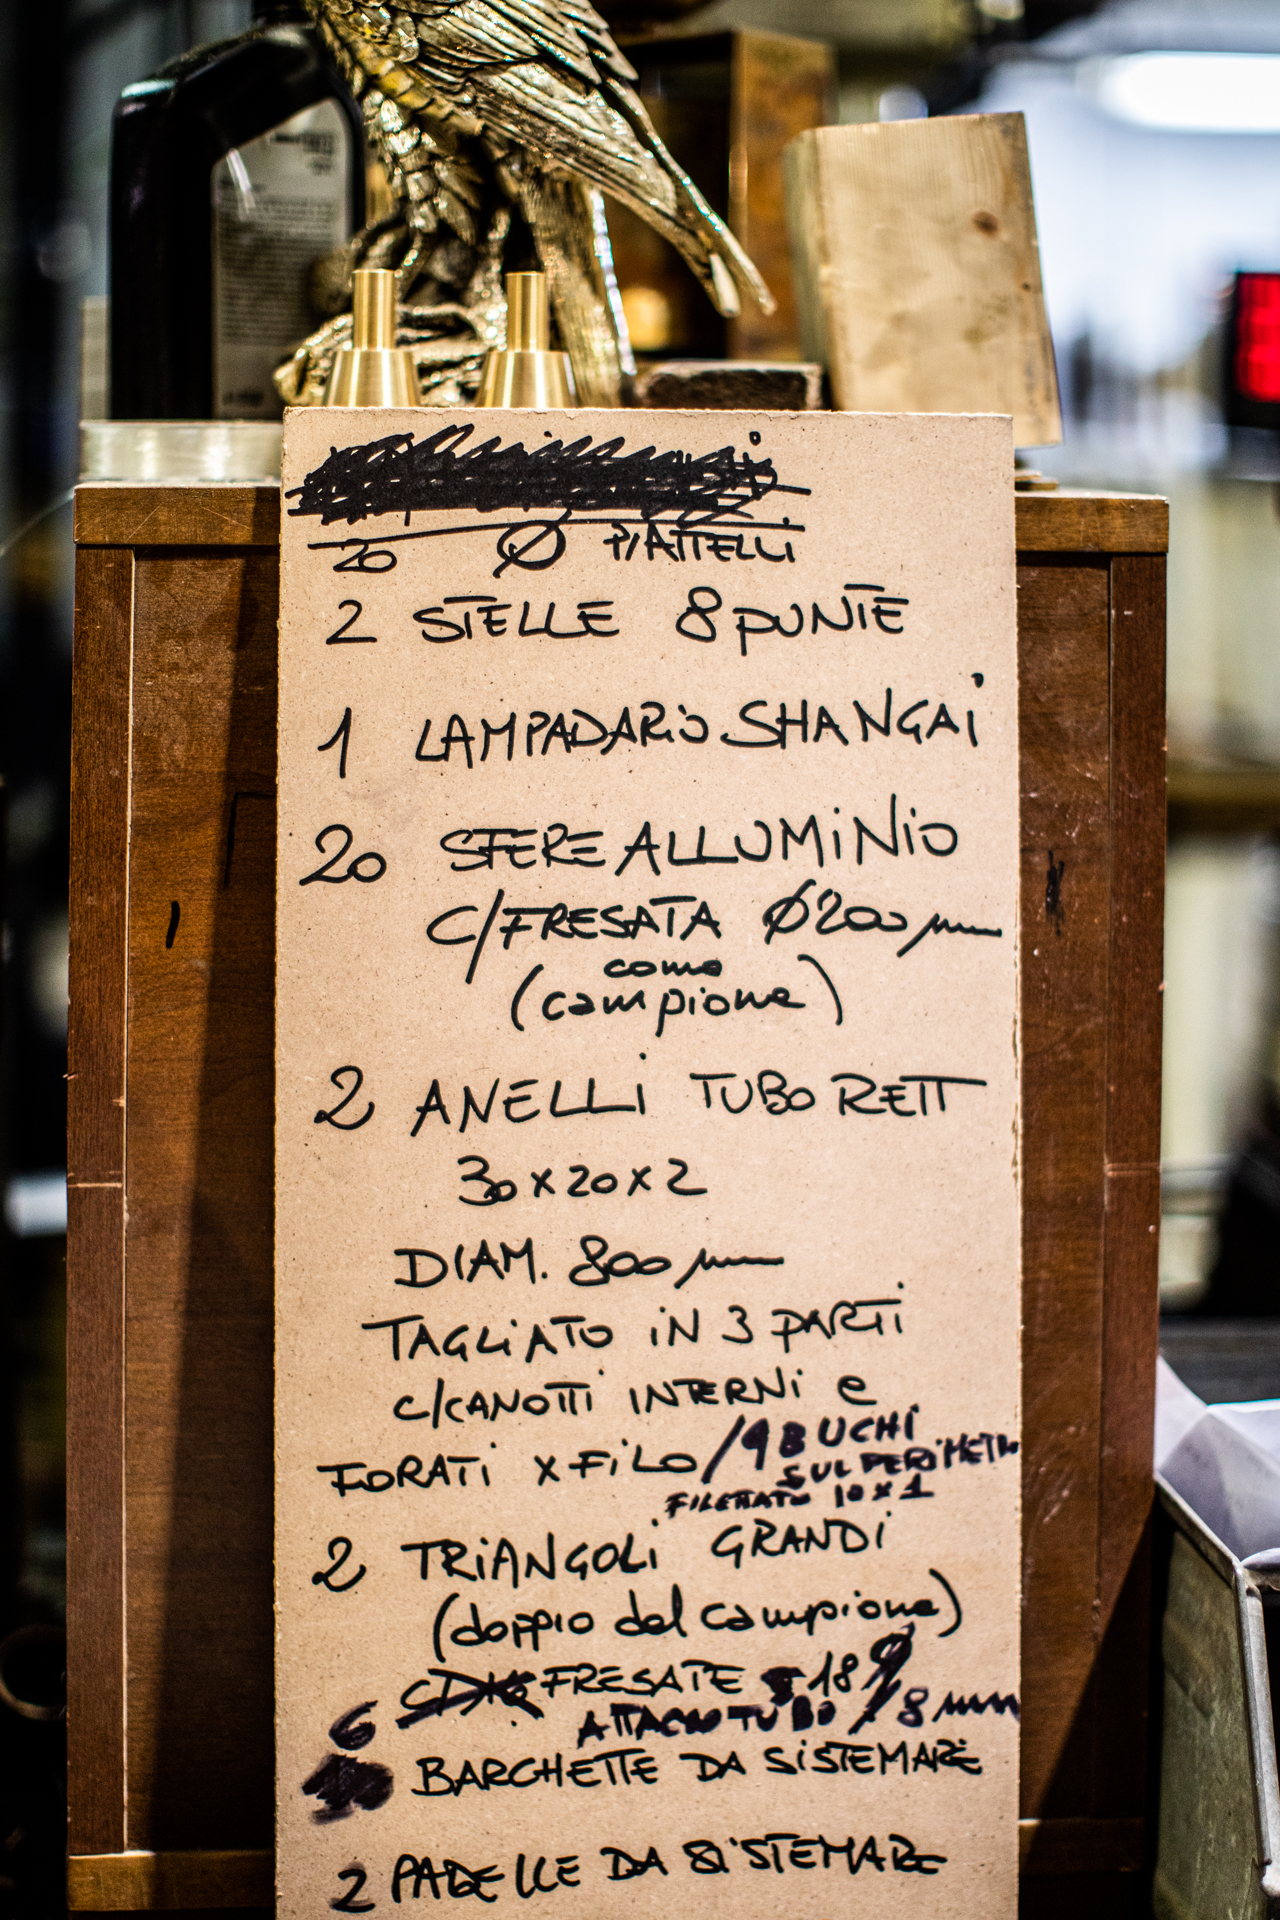 20 Ø PIATTELLI
2 STELLE 8 PUNTE
1 LAMPADARIO SHANGAI
20 SFERE ALLUMINIO
C/FRESATA Ø200 mm
come
(campione)
2 ANELLI TUBO RETT
30 x 20 x 2
DIAM. 800 mm
TAGLIATO IN 3 PARTI
C/CANOTTI INTERNI e
FORATI x FILO / 9 BUCHI
SUL PERIMETRO
FILETTATO 10 x 1
2 TRIANGOLI GRANDI
(doppio del campione)
FRESATE 18
ATTACCO TUBO / 8 mm
6 BARCHETTE DA SISTEMARE
2 PADELLE DA SISTEMARE